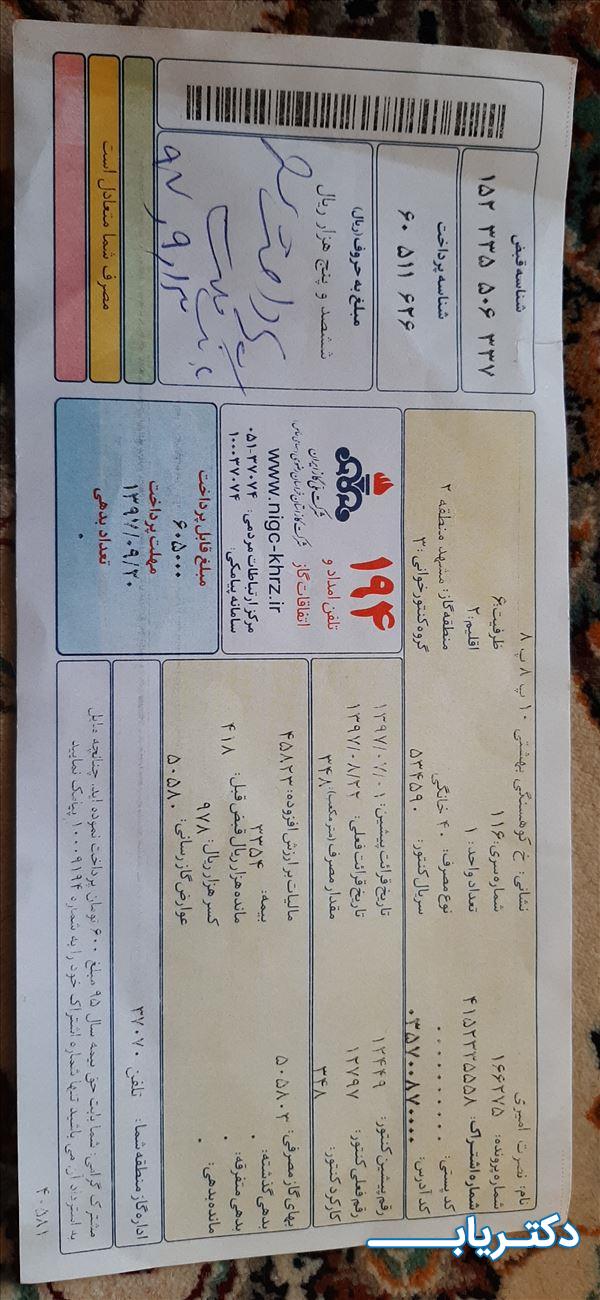 شناسه قبض
۱۵۲ ۳۳۵ ۵۰۶ ۳۳۷
شناسه پرداخت
۶۰ ۵۱۱ ۶۲۶
مبلغ به حروف (ریال)
ششصد و پنج هزار ریال
مصرف شما متعادل است
شرکت ملی گاز ایران
۱۹۴
تلفن امداد و
اتفاقات گاز
www.nigc-khrz.ir
مرکز ارتباطات مردمی: ۳۷۰۷۴-۰۵۱
سامانه پیامکی: ۱۰۰۰۳۷۰۷۴
مبلغ قابل پرداخت
۶۰۵۰۰۰
مهلت پرداخت
۱۳۹۷/۰۹/۲۰
تعداد بدهی
۰
نام: نصرت امیری
نشانی: خ کوهسنگی بهشتی ۱۰ پ ۸ پ ۸
شماره پرونده: ۱۶۶۲۷۵
شماره سری: ۱۱۶
ظرفیت: ۶
شماره اشتراک: ۴۱۵۲۳۳۵۵۵۸
تعداد واحد: ۱
اقلیم: ۲
کد پستی: ۰۰۰۰۰۰۰۰۰۰
نوع مصرف: ۴۰ خانگی
منطقه گاز: مشهد منطقه ۲
کد آدرس: ۰۳۵۷۰۰۸۷۰۰۰۰
سریال کنتور: ۵۳۴۵۹۰
گروه کنتورخوانی: ۳
رقم پیشین کنتور: ۱۲۴۴۹
تاریخ قرائت پیشین: ۱۳۹۷/۰۷/۰۱
رقم فعلی کنتور: ۱۲۷۹۷
تاریخ قرائت فعلی: ۱۳۹۷/۰۸/۲۲
کارکرد کنتور: ۳۴۸
مقدار مصرف (متر مکعب): ۳۴۸
بهای گاز مصرفی: ۵۰۵۸۰۳
مالیات بر ارزش افزوده: ۴۵۸۲۳
بدهی گذشته: ۰
بیمه: ۳۳۵۴
بدهی متفرقه: ۰
مانده هزار ریال قبض قبل: ۴۱۸
مانده بدهی: ۰
کسر هزار ریال: ۹۷۸
عوارض گازرسانی: ۵۰۵۸۰
اداره گاز منطقه شما: تلفن ۳۷۰۷۰
مشترک گرامی: شما بابت حق بیمه سال ۹۵ مبلغ ۶۰۰ تومان پرداخت نموده اید. چنانچه مایل
به استرداد آن می باشید تنها شماره اشتراک خود را به شماره ۱۰۰۰۹۱۹۴ پیامک نمایید
۴۰۵۸۱
دکتریاب